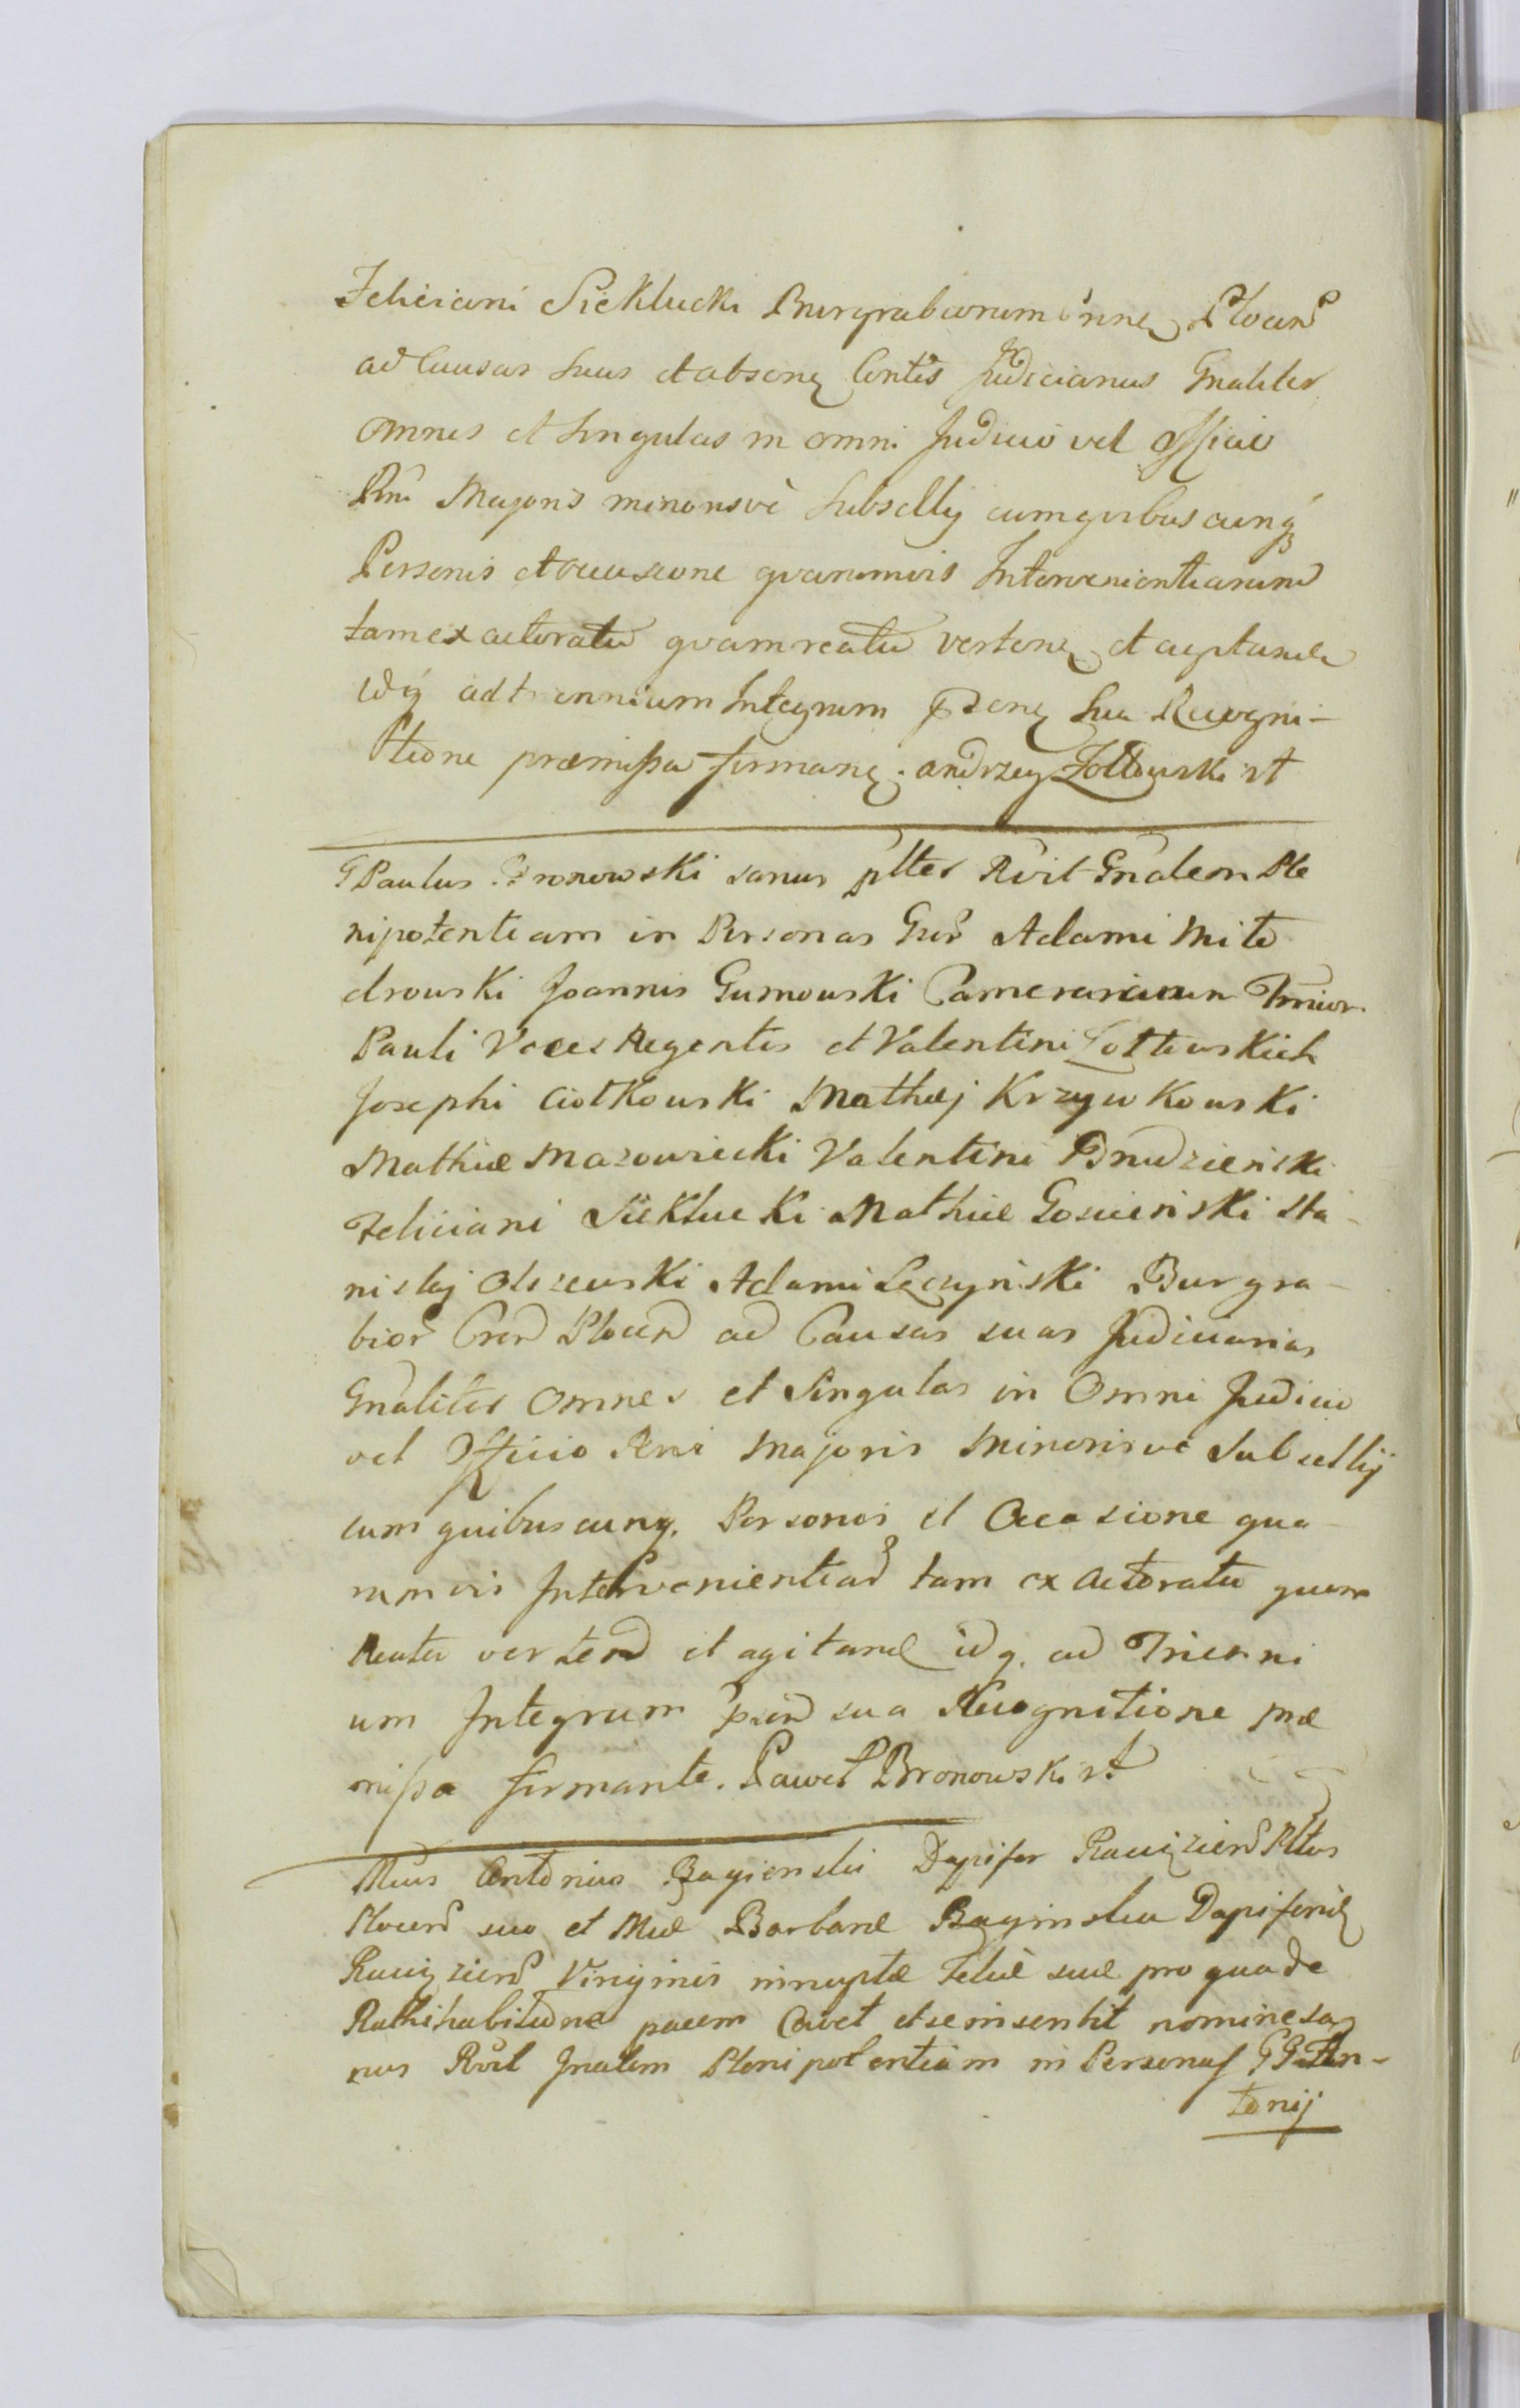 Feliciani Sieklucki Burgrabiorum Crnes Plocen
ad Causas suas et absenes Contis Judicianas Gnaliter
omnes et Singulas in omni Judicio vel Officio
Rni Majoris minorisve Subsellij cumqvibuscunq
Personis et occasione qvarumvis Intervenientiarum
tam ex actoratu qvam reatu verten et agitand
idq ad triennium Integrum psen sua Recogni-
tione præmissa firman. Andrzey Żółtowski rt
G Paulus Bronowski sanus plter Rvit Gnalem Ple
nipotentiam in Personas Gser Adami Mito
drowski Joannis Gumowski Camerariorum Trrior
Pauli Vices Regentis et Valentini Zołtowskich
Josephi Ciołkowski Mathej Krzywkowski
Mathiæ Mazowiecki Valentini Brudzieński
Feliciani Sieklucki Mathiæ Goscieński Sta-
nislaj Olszewski Adami Łęczyński Burgra-
bior Cren Plocen ad Causas suas Judiciarias
Gnaliter Omnes et Singulas in Omni Judicio
vel Officio Rni Majoris Minorisve Subsellij
cum quibuscunq. Personis et Occasione qua-
rumvis Intervenientiar tam ex Actoratu quam
Reatu verten et agitand idq. ad Trienni
um Integrum psen sua Recognitione præ
missa firmante. Paweł Bronowski rt
Mcus Antonius Bagienski Dapifer Raciązien Pltus
Plocen suo et Mcæ Barbaræ Baginska Dapiferid
Raciązien Virginis innuptæ Filiæ suæ pro qua de
Rathihabitione pacem Cavet et se inscribit nomine sa
nus Rvit Gnalem Plenipotentiam in Personas GG An-
tonij